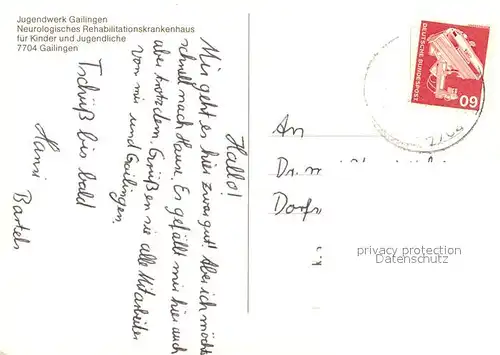 Jugendwerk Gailingen
Neurologisches Rehabilitationskrankenhaus
für Kinder und Jugendliche
7704 Gailingen
Hallo!
Mir geht es hier zwar gut! Aber ich möcht
schnell nach Hause. Es gefällt mir hier auch
aber trotzdem. Grüßen sie alle Mitarbeiter
von mir und Gailingen.
Tschüß bis bald
Hansi
Bartels
DEUTSCHE BUNDESPOST
60
An
Dr. m
Dorf
privacy protection
Datenschutz